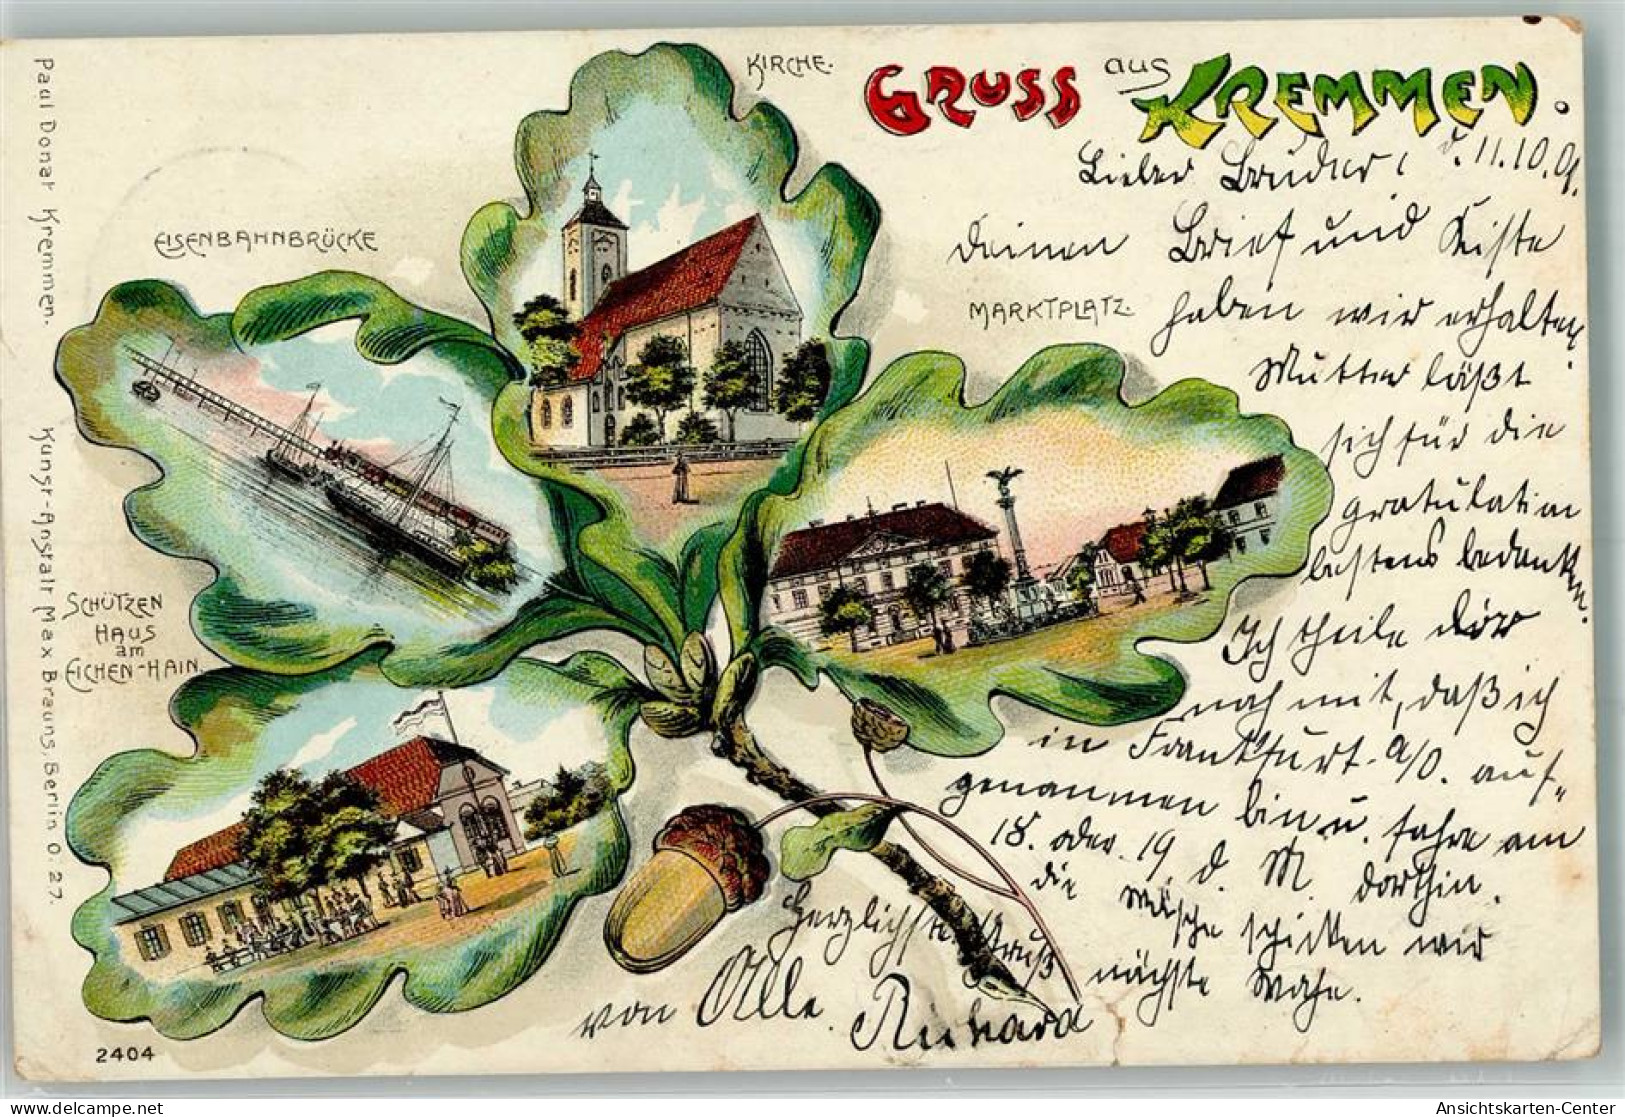 KIRCHE.
GRUSS aus KREMMEN.
EISENBAHNBRÜCKE
MARKTPLATZ.
SCHÜTZEN
HAUS
am
EICHEN-HAIN.
Paul Donat Kremmen.
Kunst-Anstalt Max Brauns, Berlin O. 27.
2404
d. 11.10.01.
Lieber Bruder!
Deinen Brief und Kiste
haben wir erhalten.
Mutter läßt
sich für die
Gratulation
bestens bedanken.
Ich theile dir
noch mit, daß ich
in Frankfurt a/O. auf-
genommen bin u. fahre am
18. oder 19. d. M. dorthin.
die Wäsche schicken wir
nächste Woche.
Herzlichsten Gruß
von Alle.
Richard
Ansichtskarten-Center